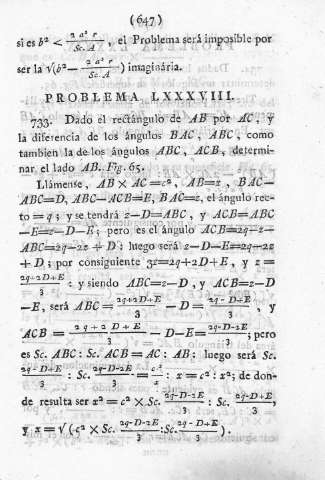 (647)
si es b² < 2 a² r / Sc. A , el Problema será imposible por
ser la √(b² — 2 a² r / Sc. A ) imaginária.
PROBLEMA LXXXVIII.
733. Dado el rectángulo de AB por AC, y
la diferencia de los ángulos BAC, ABC, como
tambien la de los ángulos ABC, ACB, determi-
nar el lado AB. Fig. 65.
Llámense, AB × AC = c², AB=x, BAC—
ABC=D, ABC—ACB=E, BAC=z, el ángulo rec-
to = q; y se tendrá z—D=ABC, y ACB=ABC
—E=z—D—E; pero es el ángulo ACB=2q—z—
ABC=2q—2z + D: luego será z—D—E=2q—2z
+ D; por consiguiente 3z=2q+2D+E, y z =
2q+2D+E / 3 : y siendo ABC=z—D, y ACB=z—D
—E, será ABC = 2q+2D+E / 3 — D = 2q - D+E / 3 , y
ACB = 2 q + 2 D + E / 3 — D—E = 2q-D-2E / 3 ; pero
es Sc. ABC : Sc. ACB = AC : AB; luego será Sc.
2q - D+E / 3 : Sc. 2q-D-2E / 3 = c² / x : x = c² : x²; de don-
de resulta ser x² = c² × Sc. 2q-D-2E / 3 : Sc. 2q-D+E / 3 ,
y x = √ (c² × Sc. 2q-D-2E / 3 : Sc. 2q - D+E / 3 ).